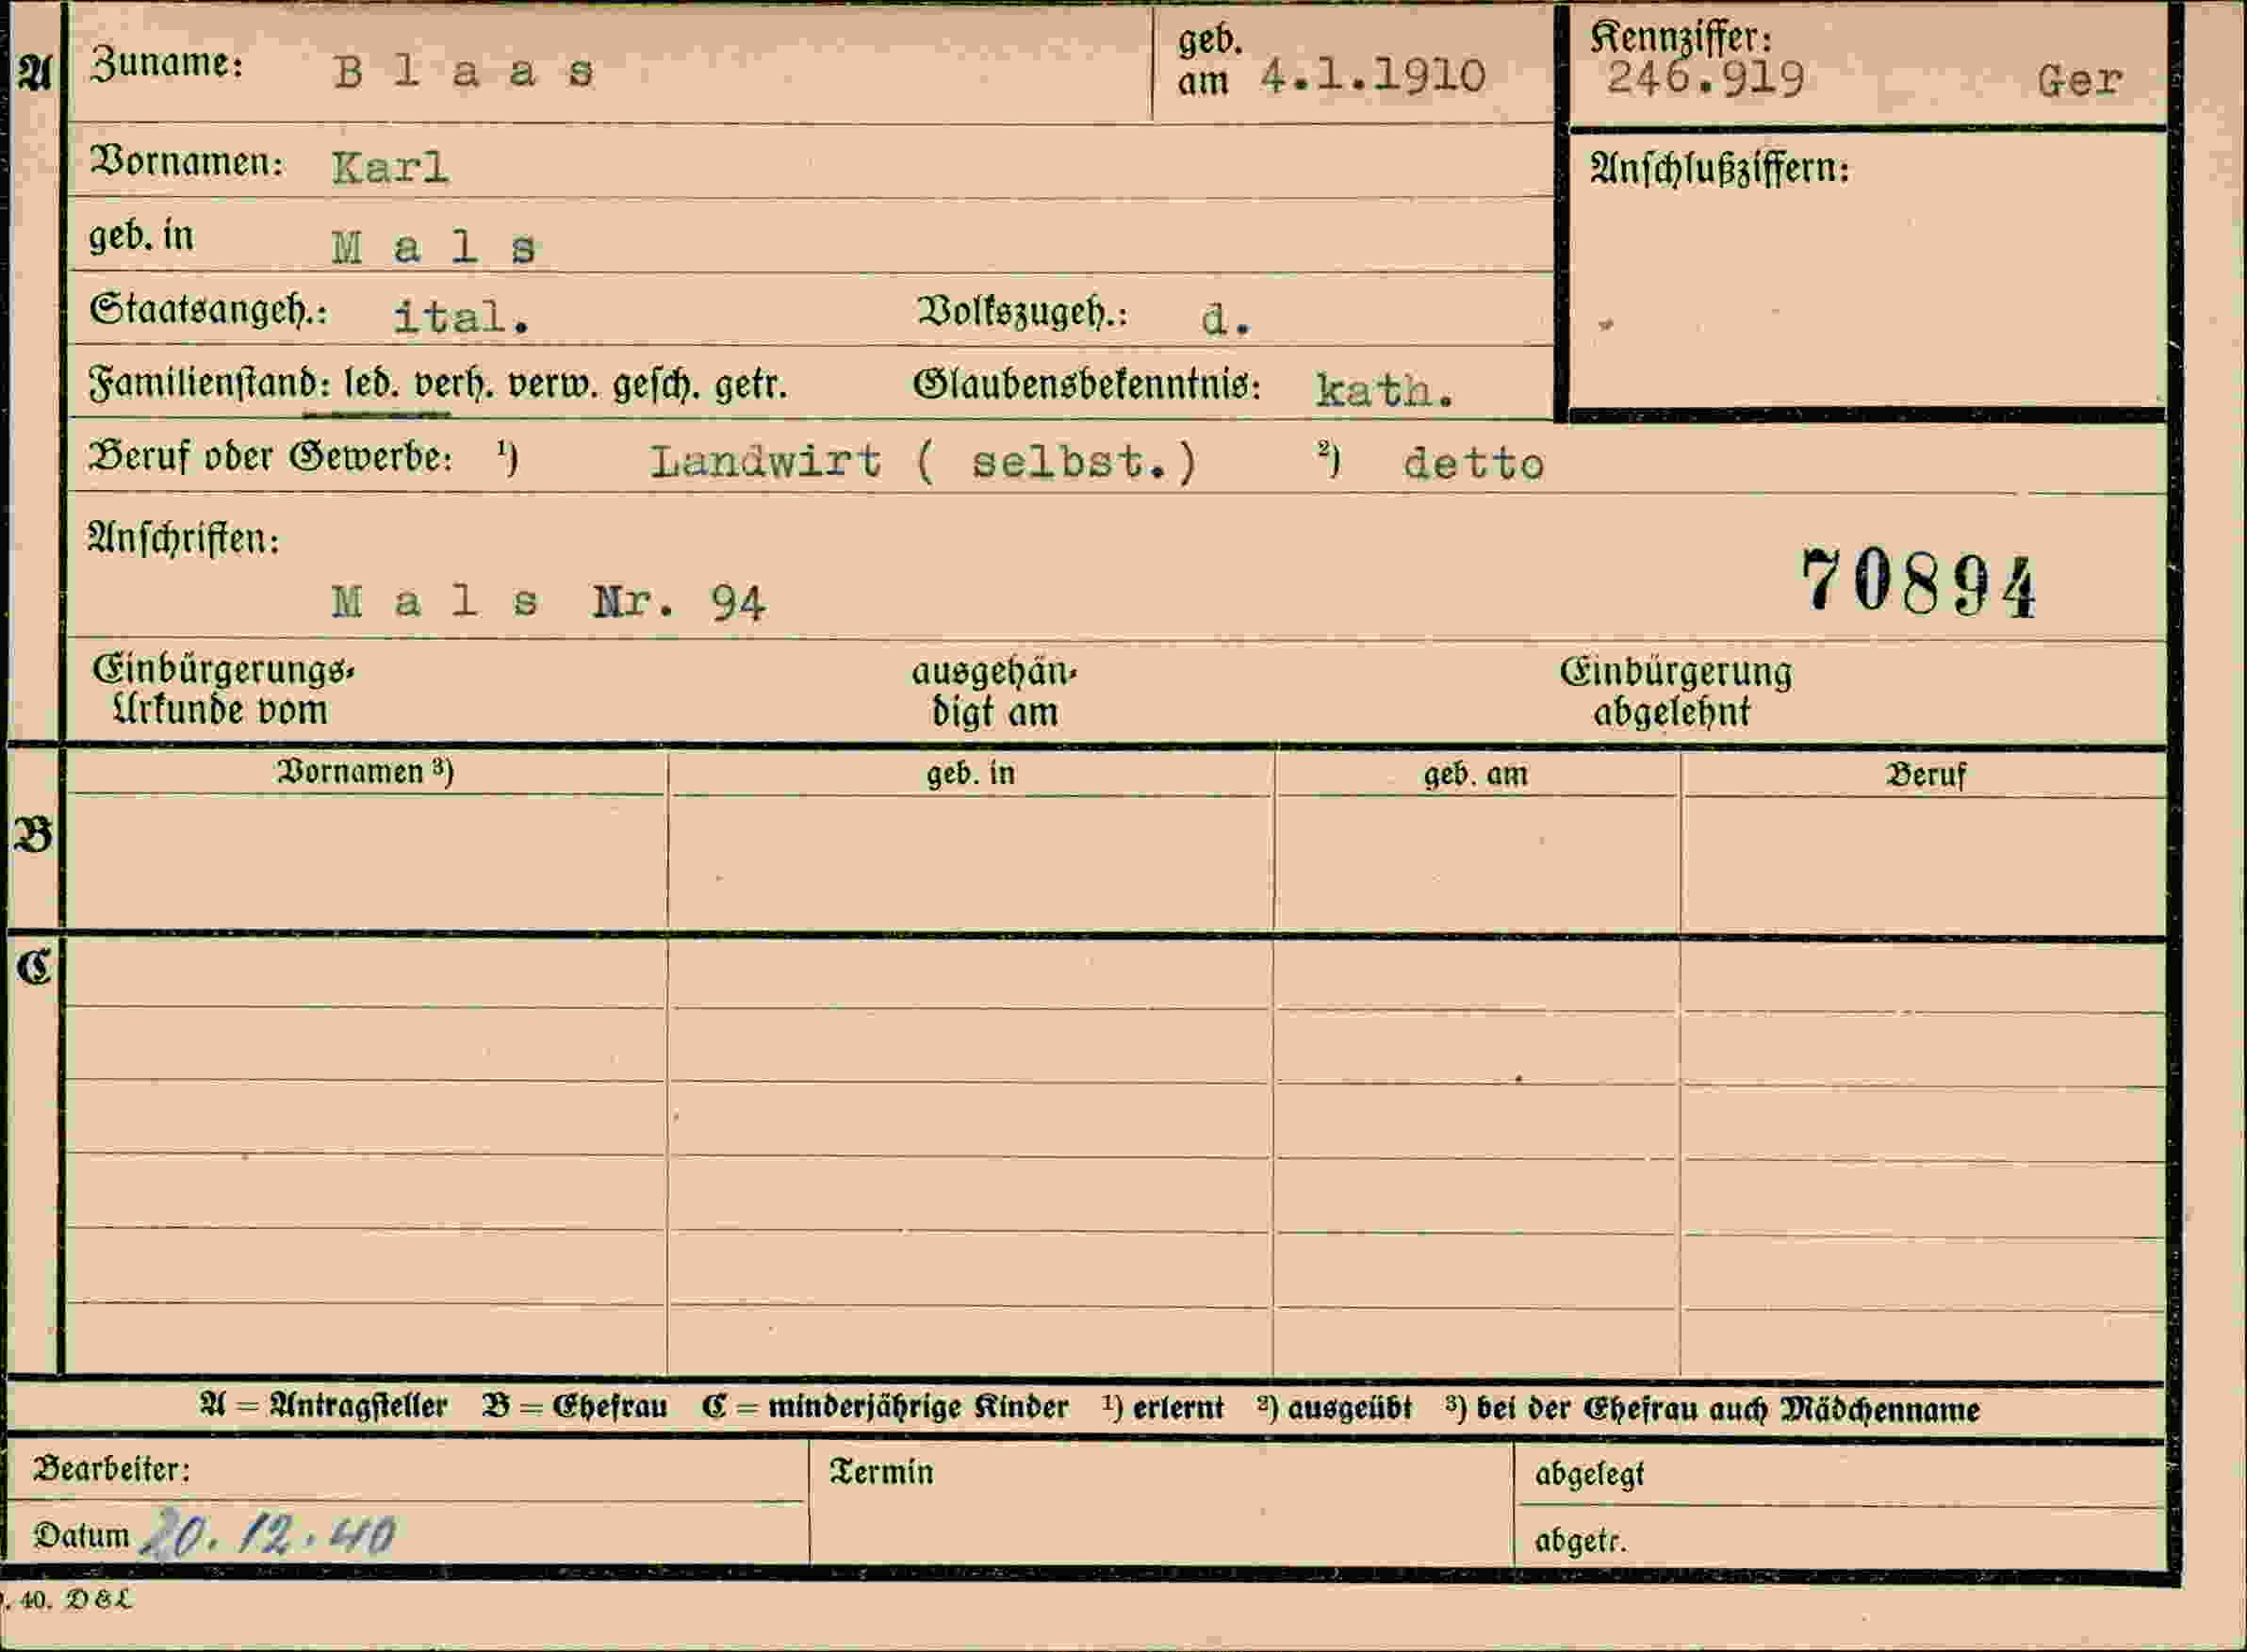 A Zuname: Blaas geb. am 4.1.1910 Kennziffer: 246.919 Ger
Vornamen: Karl Anschlußziffern:
geb. in Mals
Staatsangeh.: ital. Volkszugeh.: d.
Familienstand: led. verh. verw. gesch. getr. Glaubensbekenntnis: kath.
Beruf oder Gewerbe: ¹) Landwirt ( selbst.) ²) detto
Anschriften:
Mals Nr. 94 70894
Einbürgerungs- ausgehän- Einbürgerung
Urkunde vom digt am abgelehnt
Vornamen ³) geb. in geb. am Beruf
B
C
A = Antragsteller B = Ehefrau C = minderjährige Kinder ¹) erlernt ²) ausgeübt ³) bei der Ehefrau auch Mädchenname
Bearbeiter: Termin abgelegt
Datum 20.12.40 abgetr.
. 40. D & L